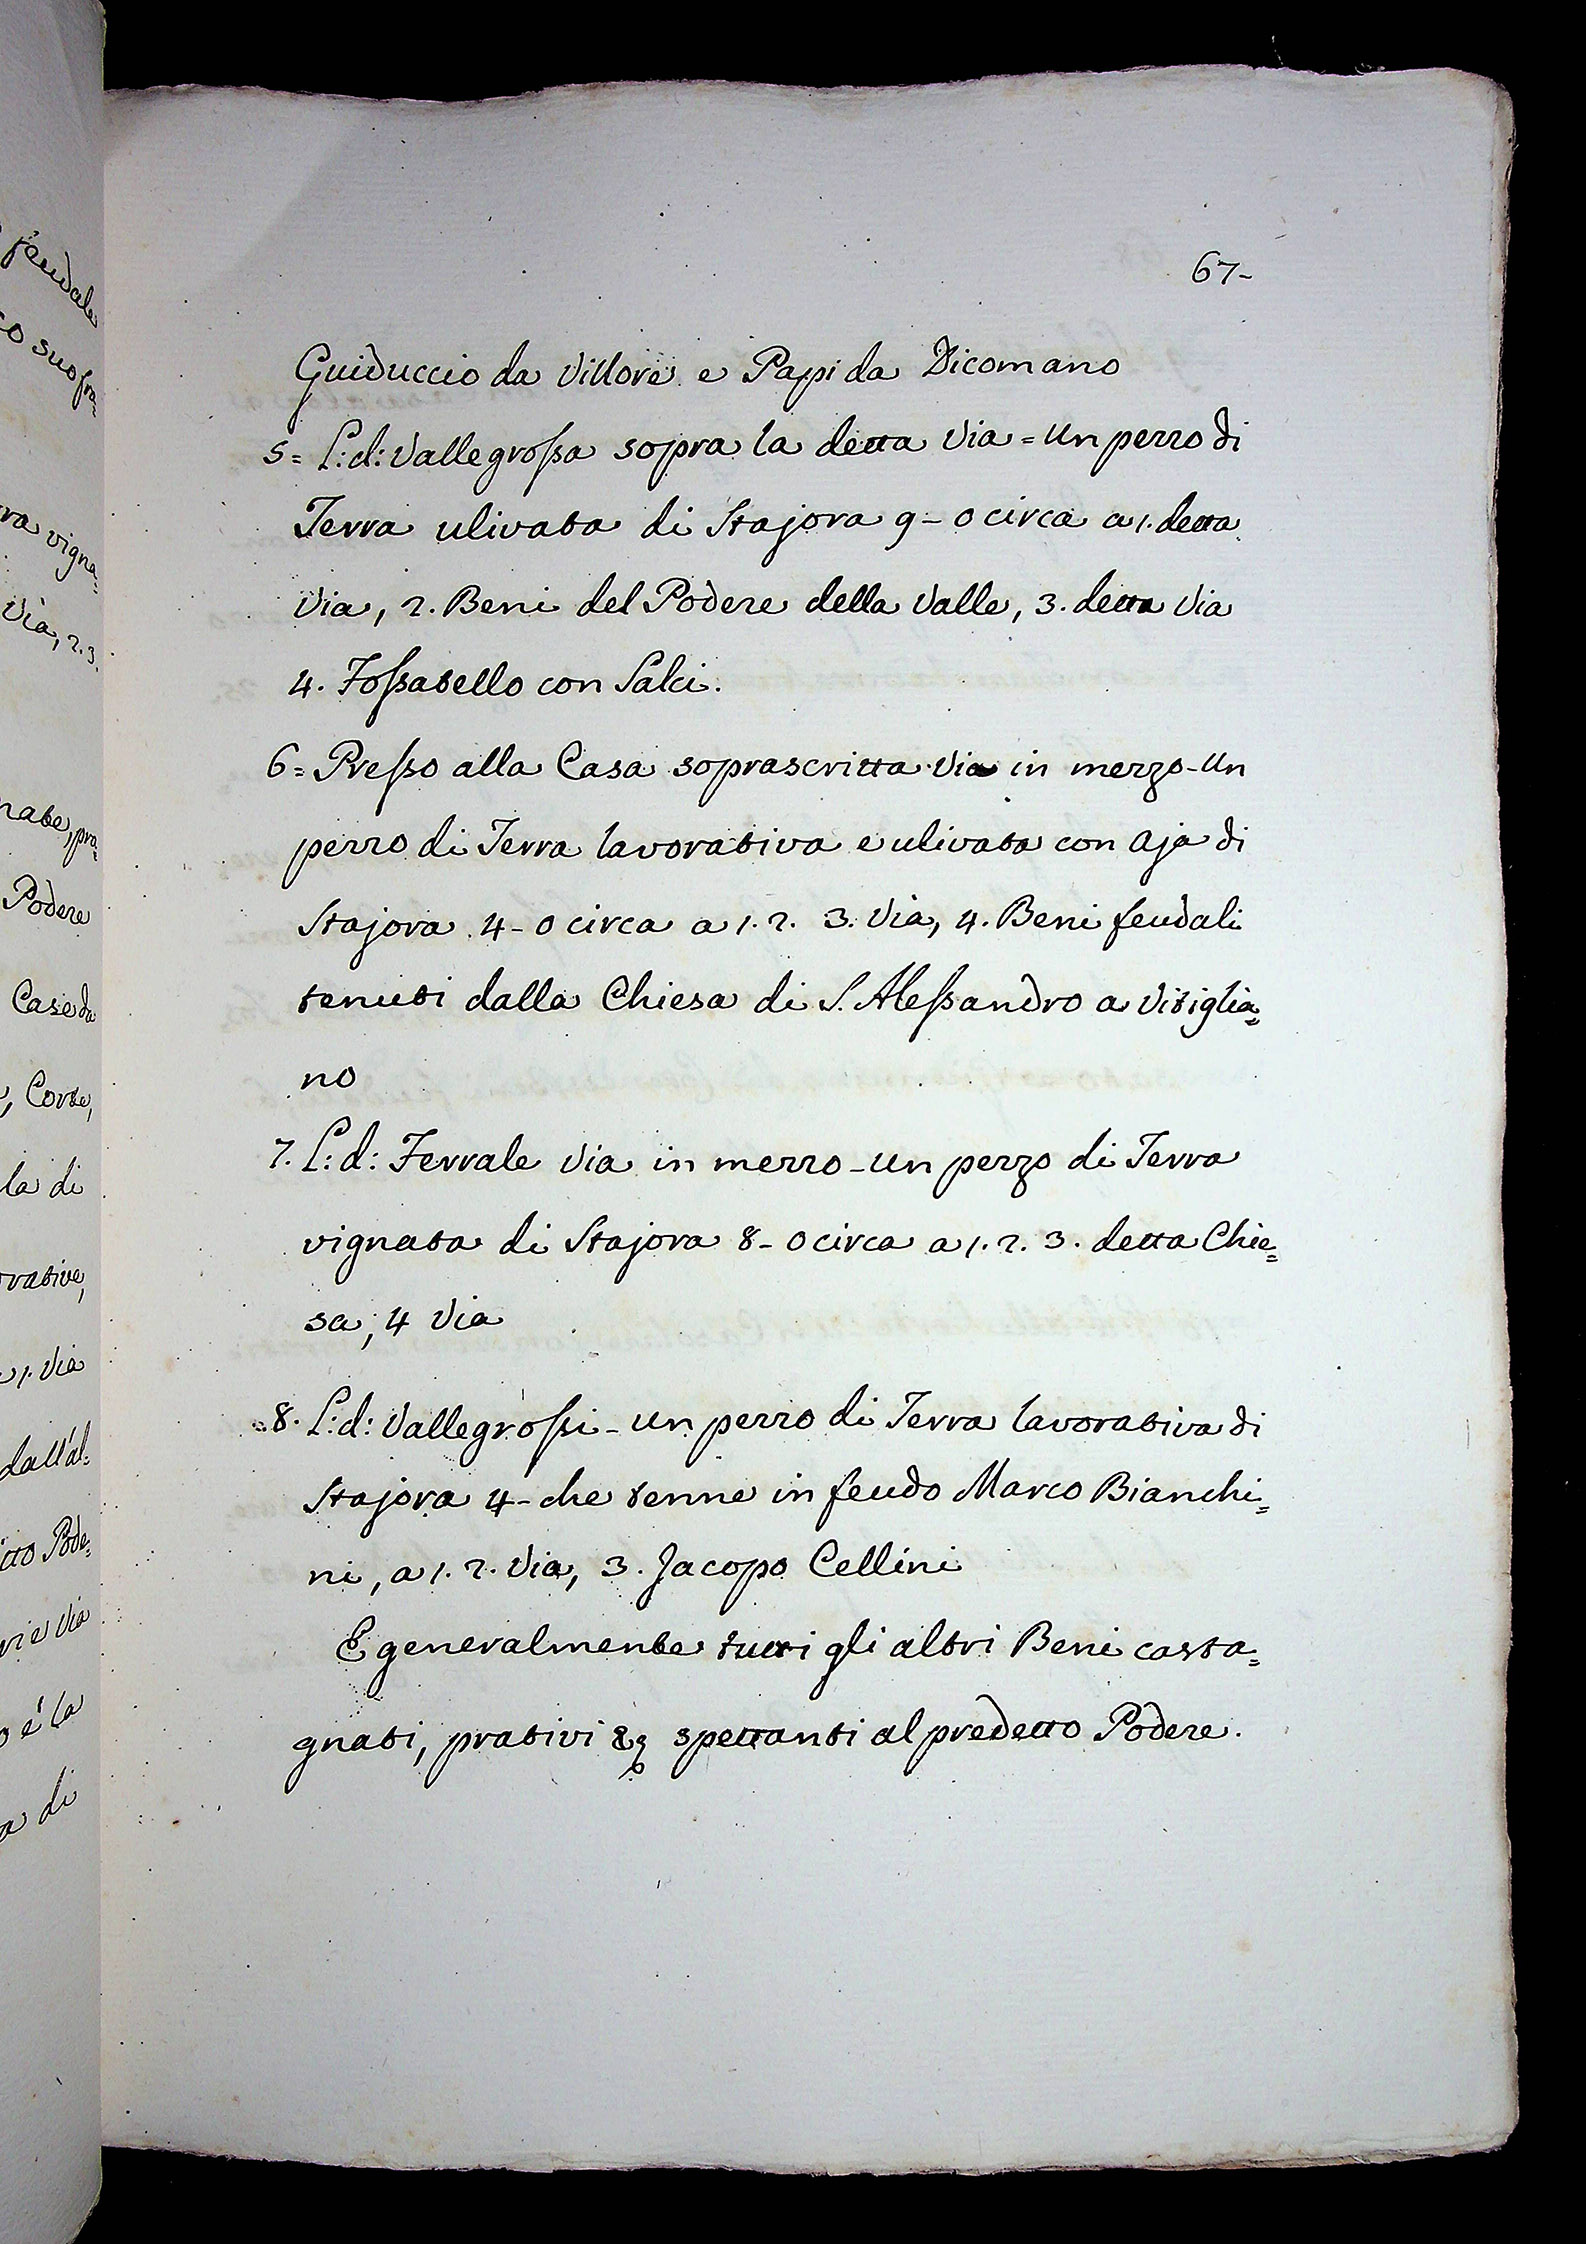 feudale
co suo fra=
ra vigna=
Via, 2. 3.
nate, pra=
Podere
Case da
, Corte,
la di
rative,
1. Via
dall'al=
tto Pode=
ri e Via
o é la
a di
67-
Guiduccio da Villore e Papi da Dicomano
5= L: d: Vallegrossa sopra la detta Via = Un pezzo di
Terra ulivata di Stajora 9- 0 circa a 1. detta
Via, 2. Beni del Podere della Valle, 3. detta Via
4. Fossatello con Salci.
6= Presso alla Casa soprascritta Via in mezzo - Un
pezzo di Terra lavorativa e ulivata con Aja di
Stajora 4- 0 circa a 1. 2. 3. Via, 4. Beni feudali
tenuti dalla Chiesa di S. Alessandro a Vitiglia=
no
7. L: d: Ferrale Via in mezzo - Un pezzo di Terra
vignata di Stajora 8- 0 circa a 1. 2. 3. detta Chie=
sa, 4 Via
8. L: d: Vallegrossi - Un pezzo di Terra lavorativa di
Stajora 4- che tenne in feudo Marco Bianchi=
ni, a 1. 2. Via, 3. Jacopo Cellini
E generalmente tutti gli altri Beni casta=
gnati, prativi &c spettanti al predetto Podere.